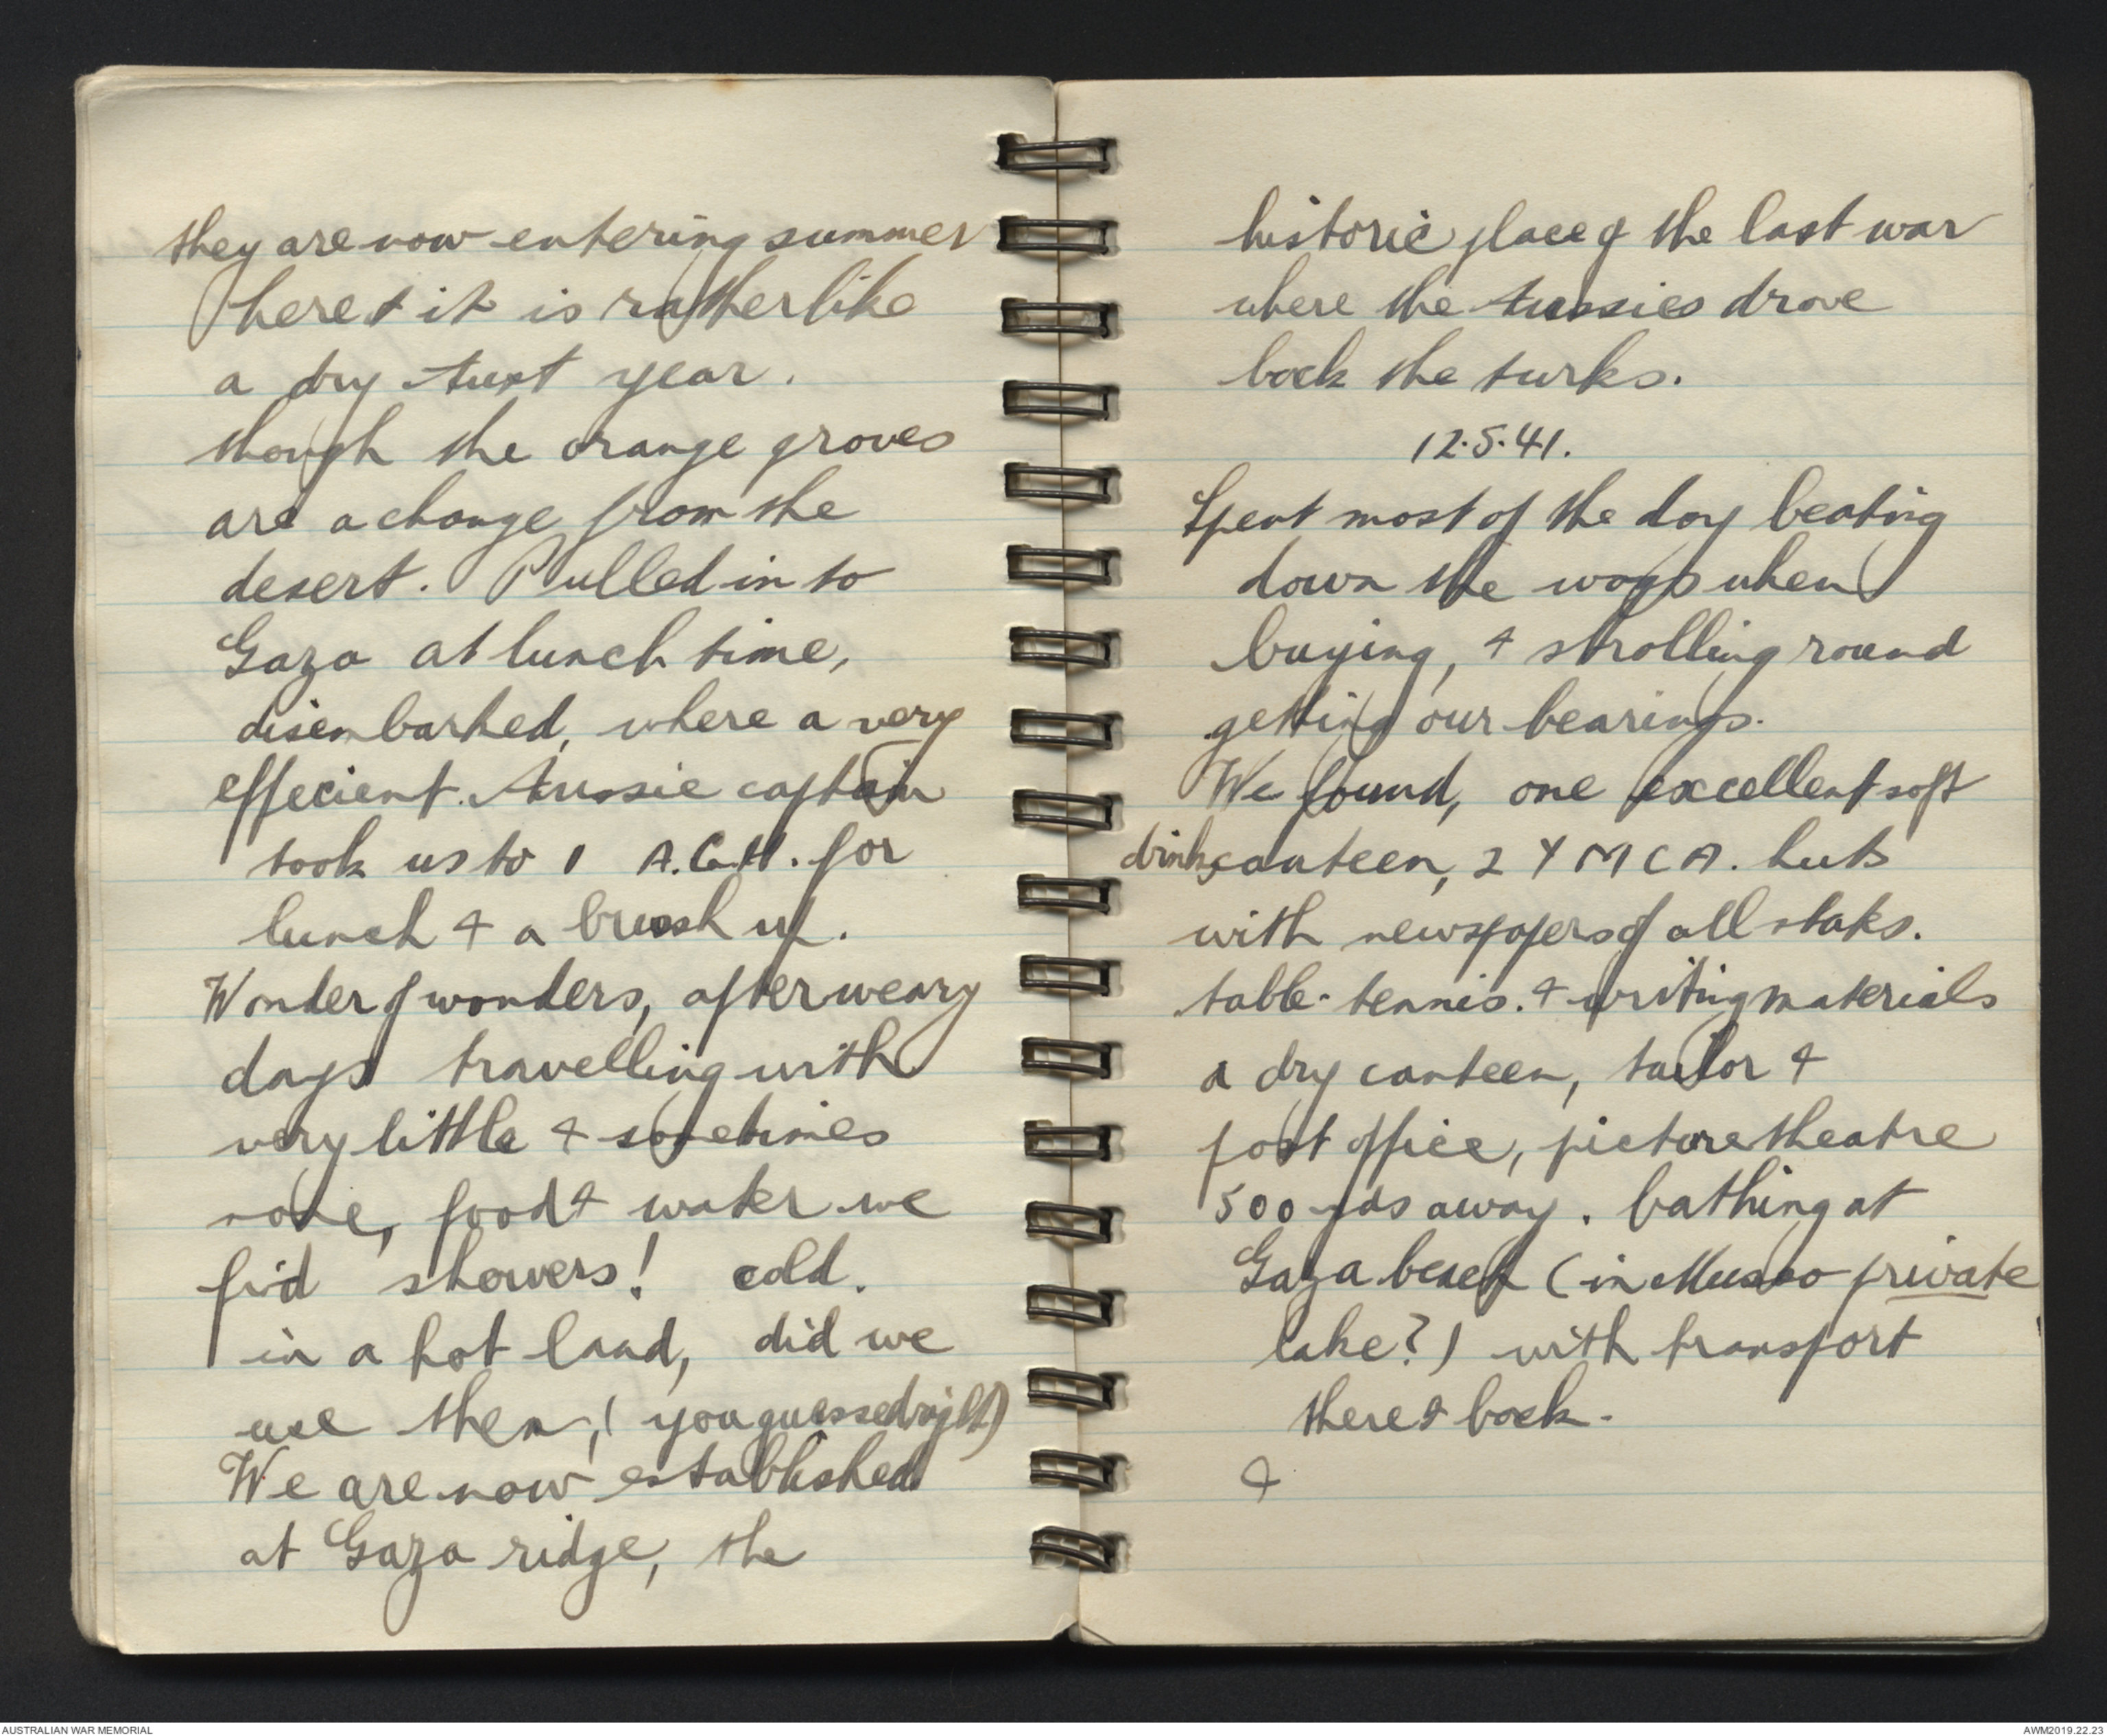 they are now entering summer
here & it is rather like
a dry Aust year.
though the orange groves
are a change from the
desert. Pulled in to
Gaza at lunch time,
disembarked, where a very
effecient Aussie captain
took us to 1 A.G.H. for
lunch & a brush up.
Wonder of wonders, after weary
days travelling with
very little & sometimes
none, food & water we
find showers! cold.
in a hot land, did we
use them, (you guessed right)
We are now established
at Gaza ridge, the
historic place of the last war
where the Aussies drove
back the turks.
12.5.41.
Spent most of the day beating
down the wogs when
buying, & strolling round
getting our bearings.
We found, one excellent soft
drinks canteen, 2 Y M C A. huts
with newspapers of all states.
table-tennis. & writing materials
a dry canteen, tailor &
post office, picture theatre
500 yds away. bathing at
Gaza beach (in Musso private
lake?) with transport
there & back.
&
AUSTRALIAN WAR MEMORIAL
AWM2019.22.23